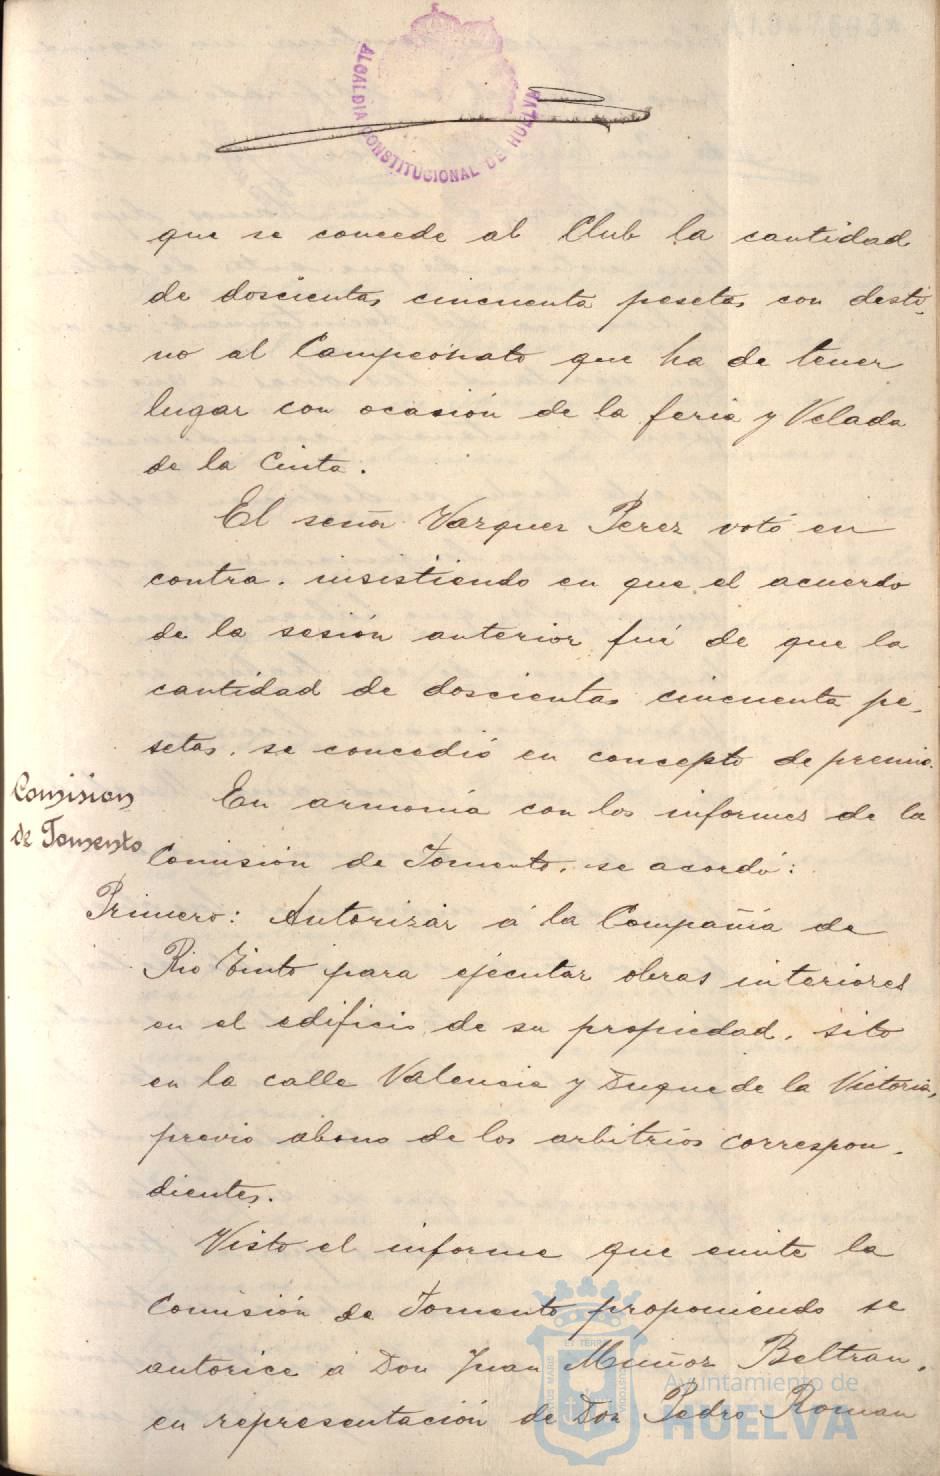 ALCALDIA CONSTITUCIONAL DE HUELVA
que se concede al Club la cantidad
de doscientas cincuenta pesetas con desti-
no al Campeonato que ha de tener
lugar con ocasión de la feria y Velada
de la Cinta.
El señor Vazquez Perez votó en
contra. insistiendo en que el acuerdo
de la sesión anterior fué de que la
cantidad de doscientas cincuenta pe-
setas. se concedió en concepto de premio.
Comision
de Fomento
En armonía con los informes de la
Comisión de Fomento. se acordó:
Primero: Autorizar á la Compañía de
Rio Tinto para ejecutar obras interiores
en el edificio de su propiedad. sito
en la calle Valencia y Duque de la Victoria,
previo abono de los arbitrios correspon-
dientes.
Visto el informe que emite la
Comisión de Fomento proponiendo se
autorice á Don Juan Muñoz Beltran.
en representación de Don Pedro Roman
Ayuntamiento de
HUELVA